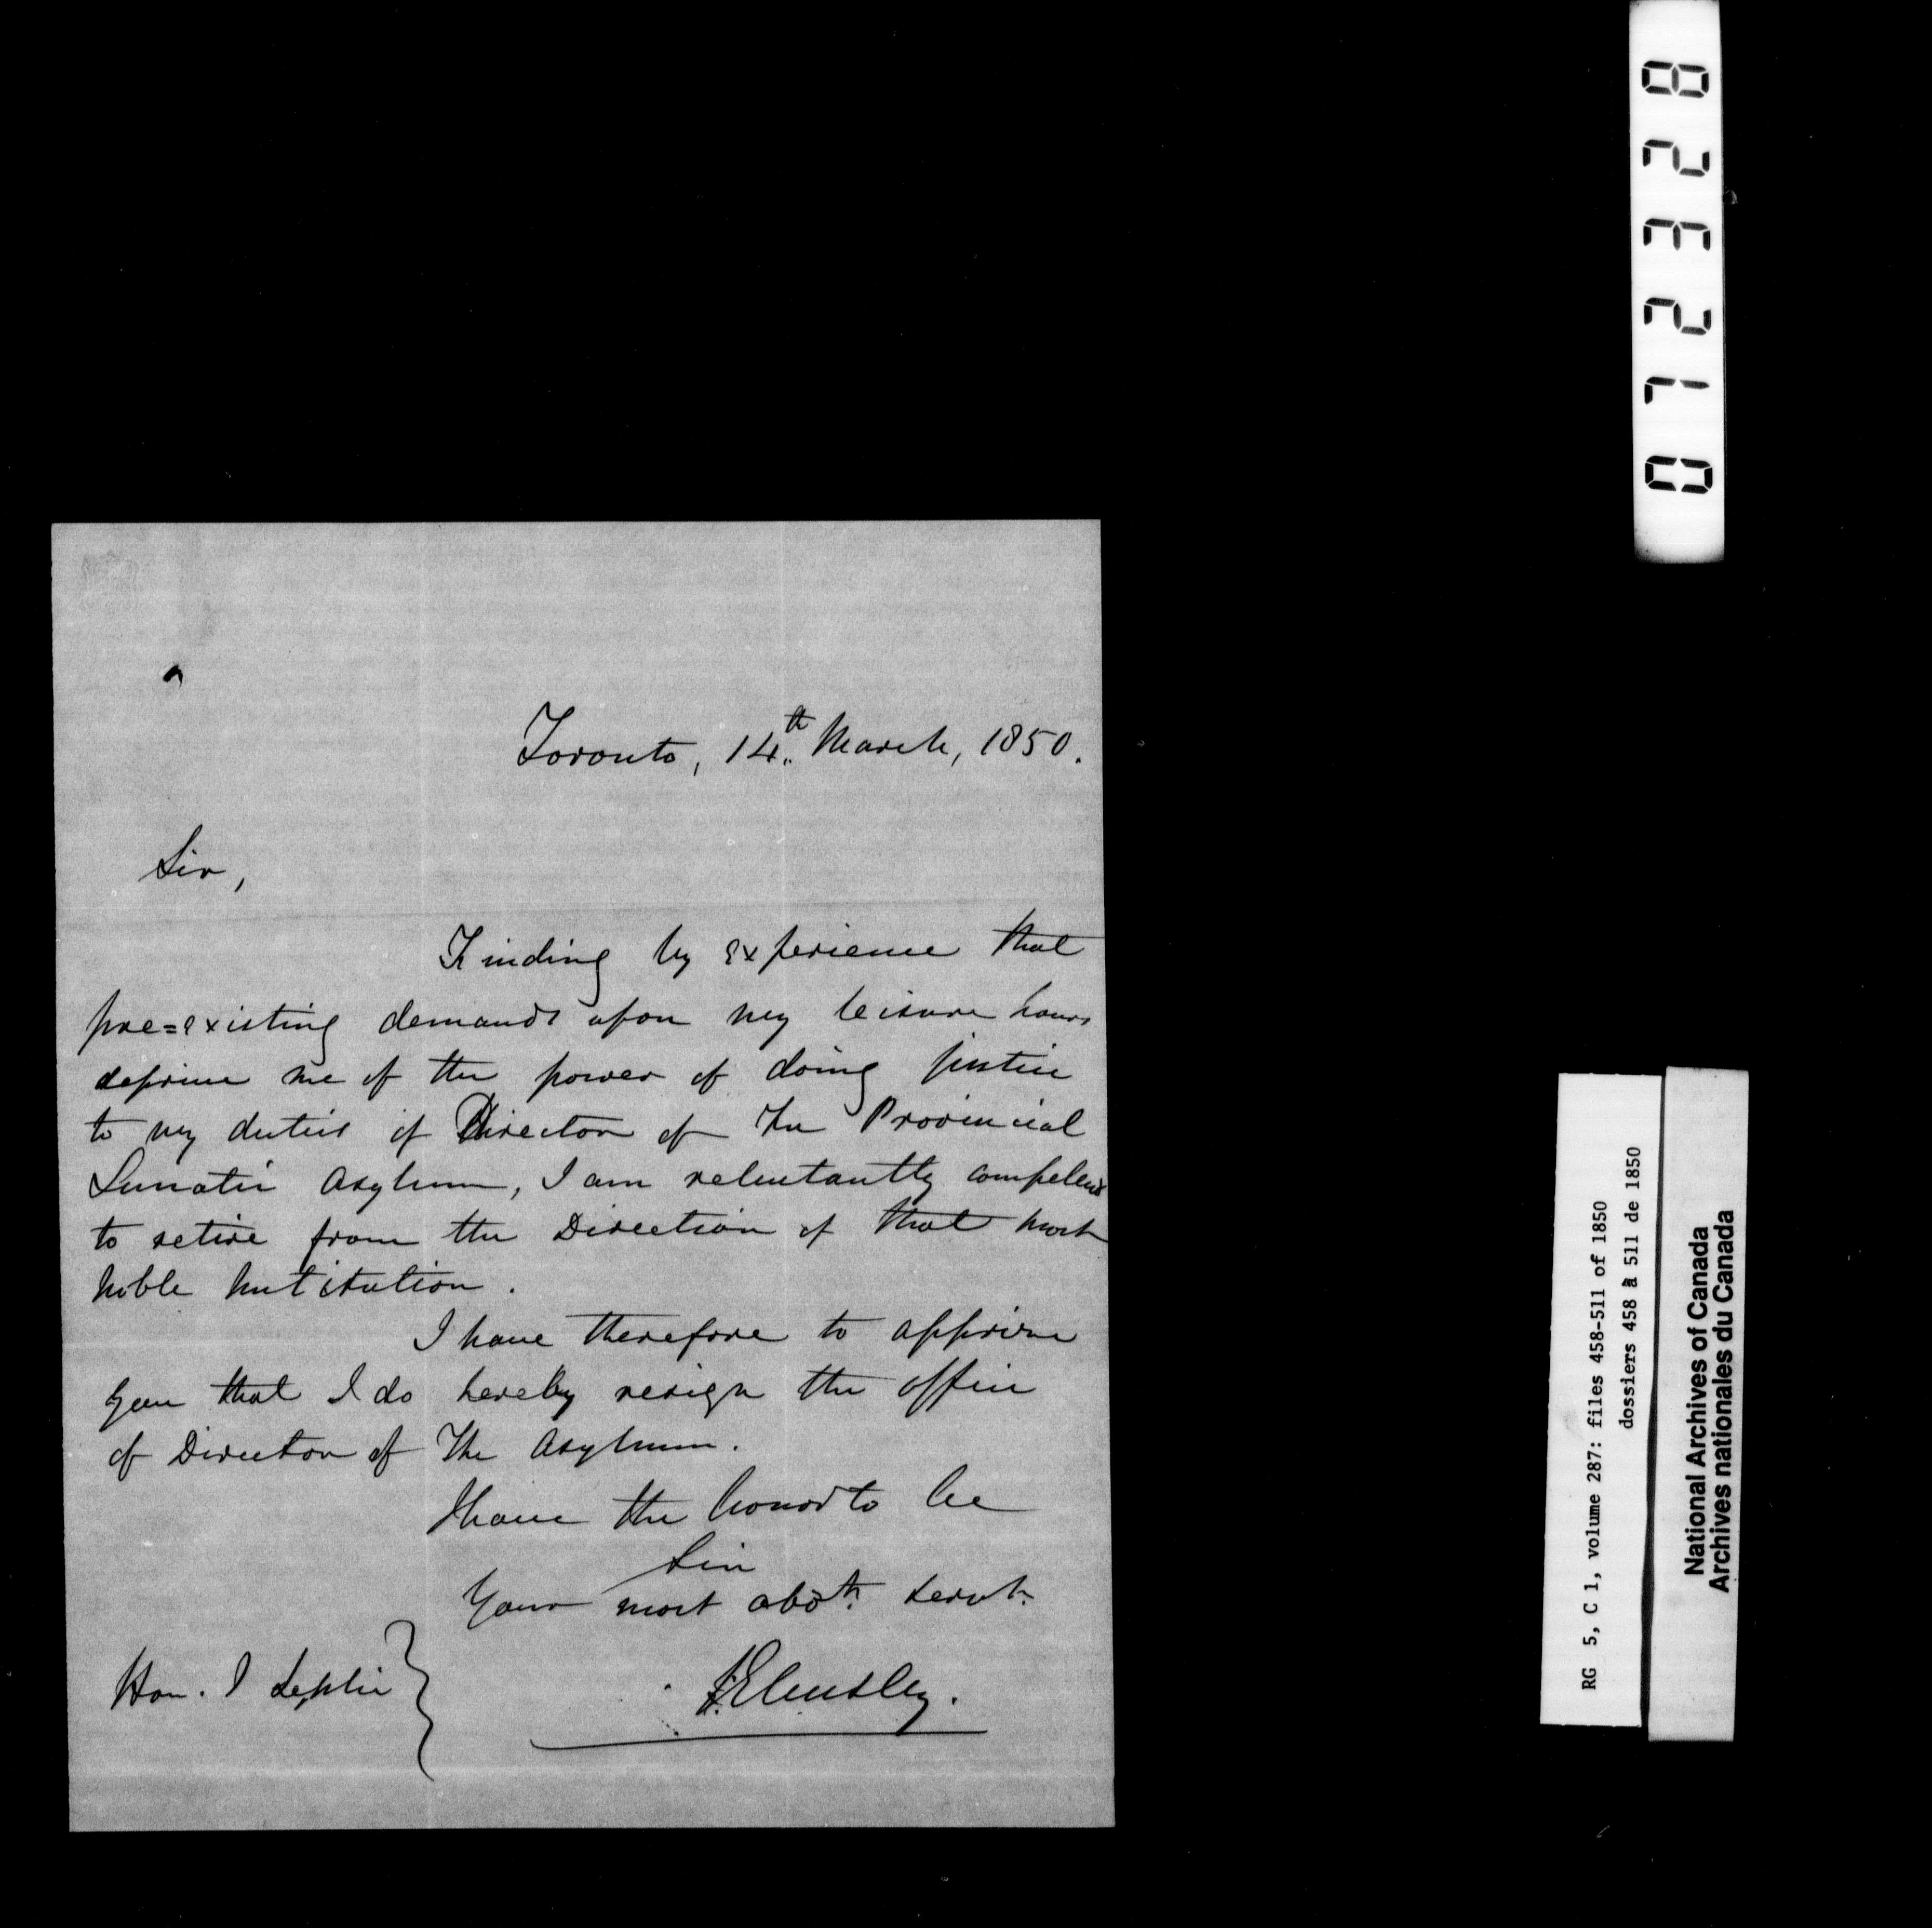 Toronto, 14th March, 1850.
Sir,
Finding by experience that
pre=existing demands upon my leisure hours
deprive me of the power of doing justice
to my duties of Director of the Provincial
Lunatic Asylum, I am reluctantly compelled
to retire from the Direction of that most
noble Institution.
I have therefore to apprise
you that I do hereby resign the office
of Director of The Asylum.
I have the honor to be
Sir
Your most obdt. servt.
J. Elmsley.
Hon. J Leslie
072328
RG 5, C 1, volume 287: files 458-511 of 1850
dossiers 458 à 511 de 1850
National Archives of Canada
Archives nationales du Canada